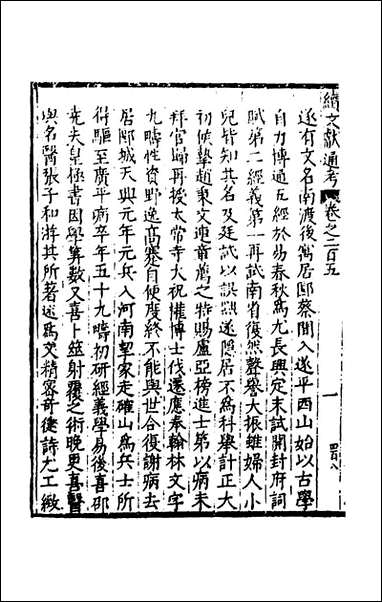 續文獻通考 卷之二百五 一 四百八
遂有文名南渡後寓居郾蔡間入遂平西山始以古學
自力博通五經於易春秋為尤長興定末試開封府詞
賦第二經義第一再試南省復然聲譽大振雖婦人小
兒皆知其名及廷試以誤絀遂隱居不為科舉計正大
初侯摯趙秉文連章薦之特賜盧亞榜進士第以病未
拜官歸再授太常寺太祝權博士俄遷應奉翰林文字
九疇性資野逸高蹇自便度終不能與世合復謝病去
居郾城天興元年元兵入河南挈家走確山為兵士所
得驅至廣平病卒年五十九疇初研經義學易後喜邵
堯夫皇極書因學算數又喜卜筮射覆之術晚更喜醫
與名醫張子和游其所著述為文精密奇健詩尤工緻